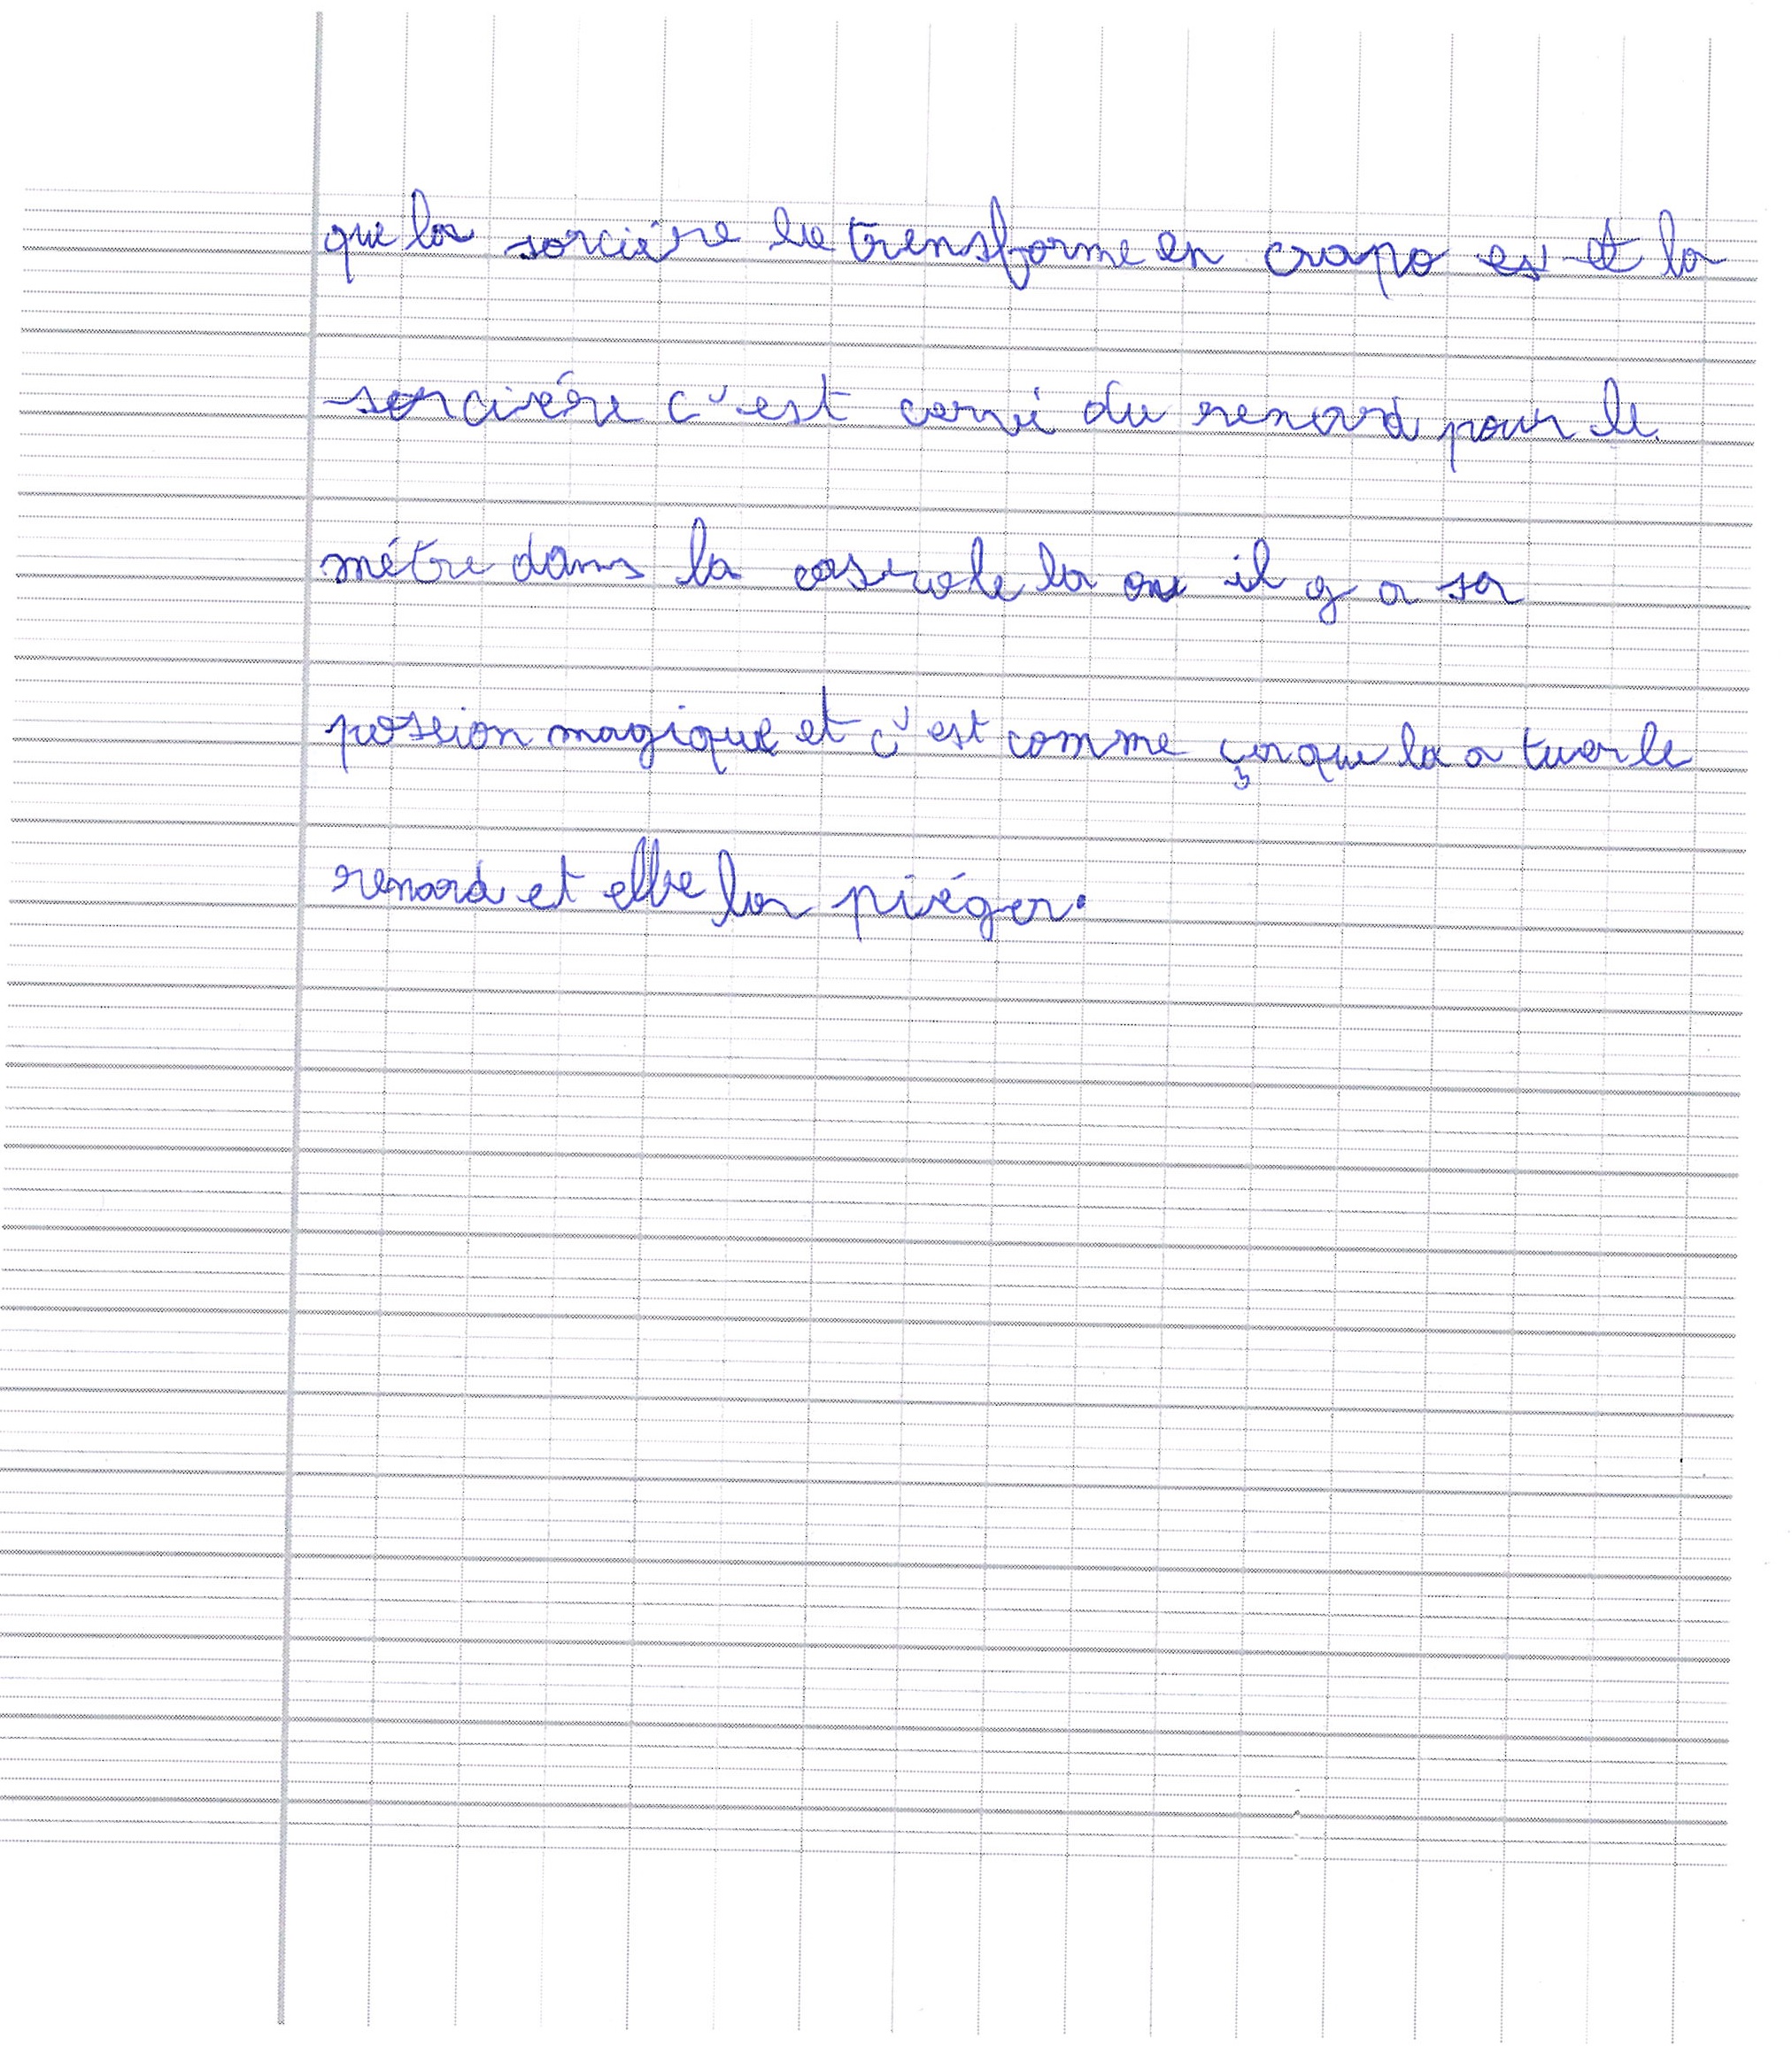 que la sorciére le transforme en crapo es et la
sorciére c'est cervi du renard pour le
métre dans la caserole la ou il y a sa
possion magique et c'est comme ça que la a tuer le
renard et elle la piéger.